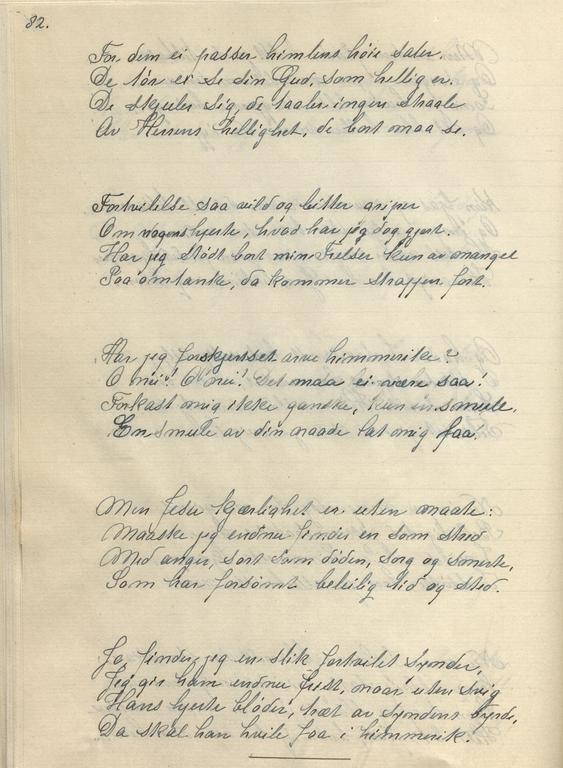 82.
For dem ei passer himlens høie saler.
De tør ei se din Gud, som hellig er.
De skjuler sig, de taaler ingen straale
Av Herrens hellighet, de bort maa se.
Fortvilelse saa vild og bitter griper
Om nogens hjerte, hvad har jeg dog gjort.
Har jeg stødt bort min Frelser kun av mangel
Paa omtanke, da kommer straffen fort.
Har jeg forskjertset arve himmerike?
O nei! O nei! Det maa ei være saa!
Forkast mig ikke ganske, kun en smule,
En smule av din naade lat mig faa!
Men Jesu kjærlighet er uten maate:
Maaske jeg endnu finder en som stod
Med anger, sort som døden, sorg og smerte,
Som har forsømt beleilig tid og sted.
Ja, finder jeg en slik fortvilet synder,
Jeg gir ham endnu frist, naar uten svig
Hans hjerte bløder, træt av syndens byrde,
Da skal han hvile faa i himmerik.